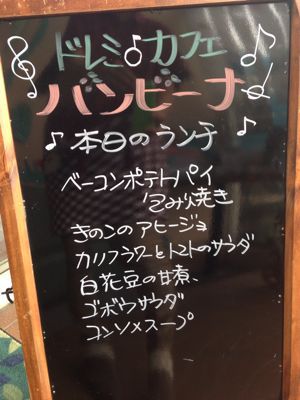 ドレミ♪カフェ
バンビーナ
♪本日のランチ♪
ベーコンポテトパイ
包み焼き
きのこのアヒージョ
カリフラワーとトマトのサラダ
白花豆の甘煮、
ゴボウサラダ
コンソメスープ